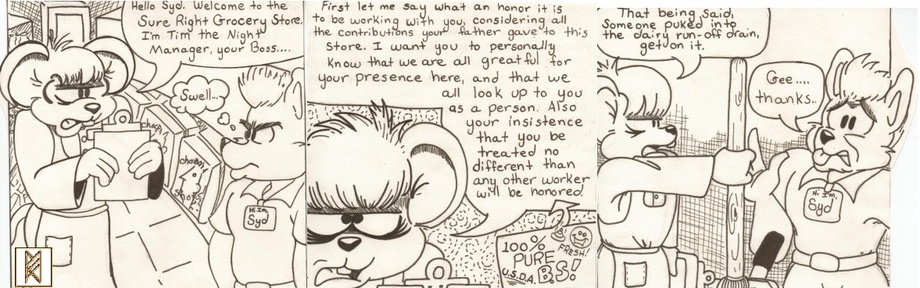 Hello Syd. Welcome to the
Sure Right Grocery Store.
I'm Tim the Night
Manager, your Boss....
Swell...
cheapy
cheapy
shots
Hi Im,
Syd
First let me say what an honor it is
to be working with you, considering all
the contributions your father gave to this
Store. I want you to personally
know that we are all greatful for
your presence here, and that we
all look up to you
as a person. Also
your insistence
that you be
treated no
different than
any other worker
will be honored.
100%
PURE
U.S.D.A. B.S!
FRESH!
That being said,
Someone puked into
the dairy run-off drain,
get on it.
Gee....
thanks..
Hi Im,
Syd